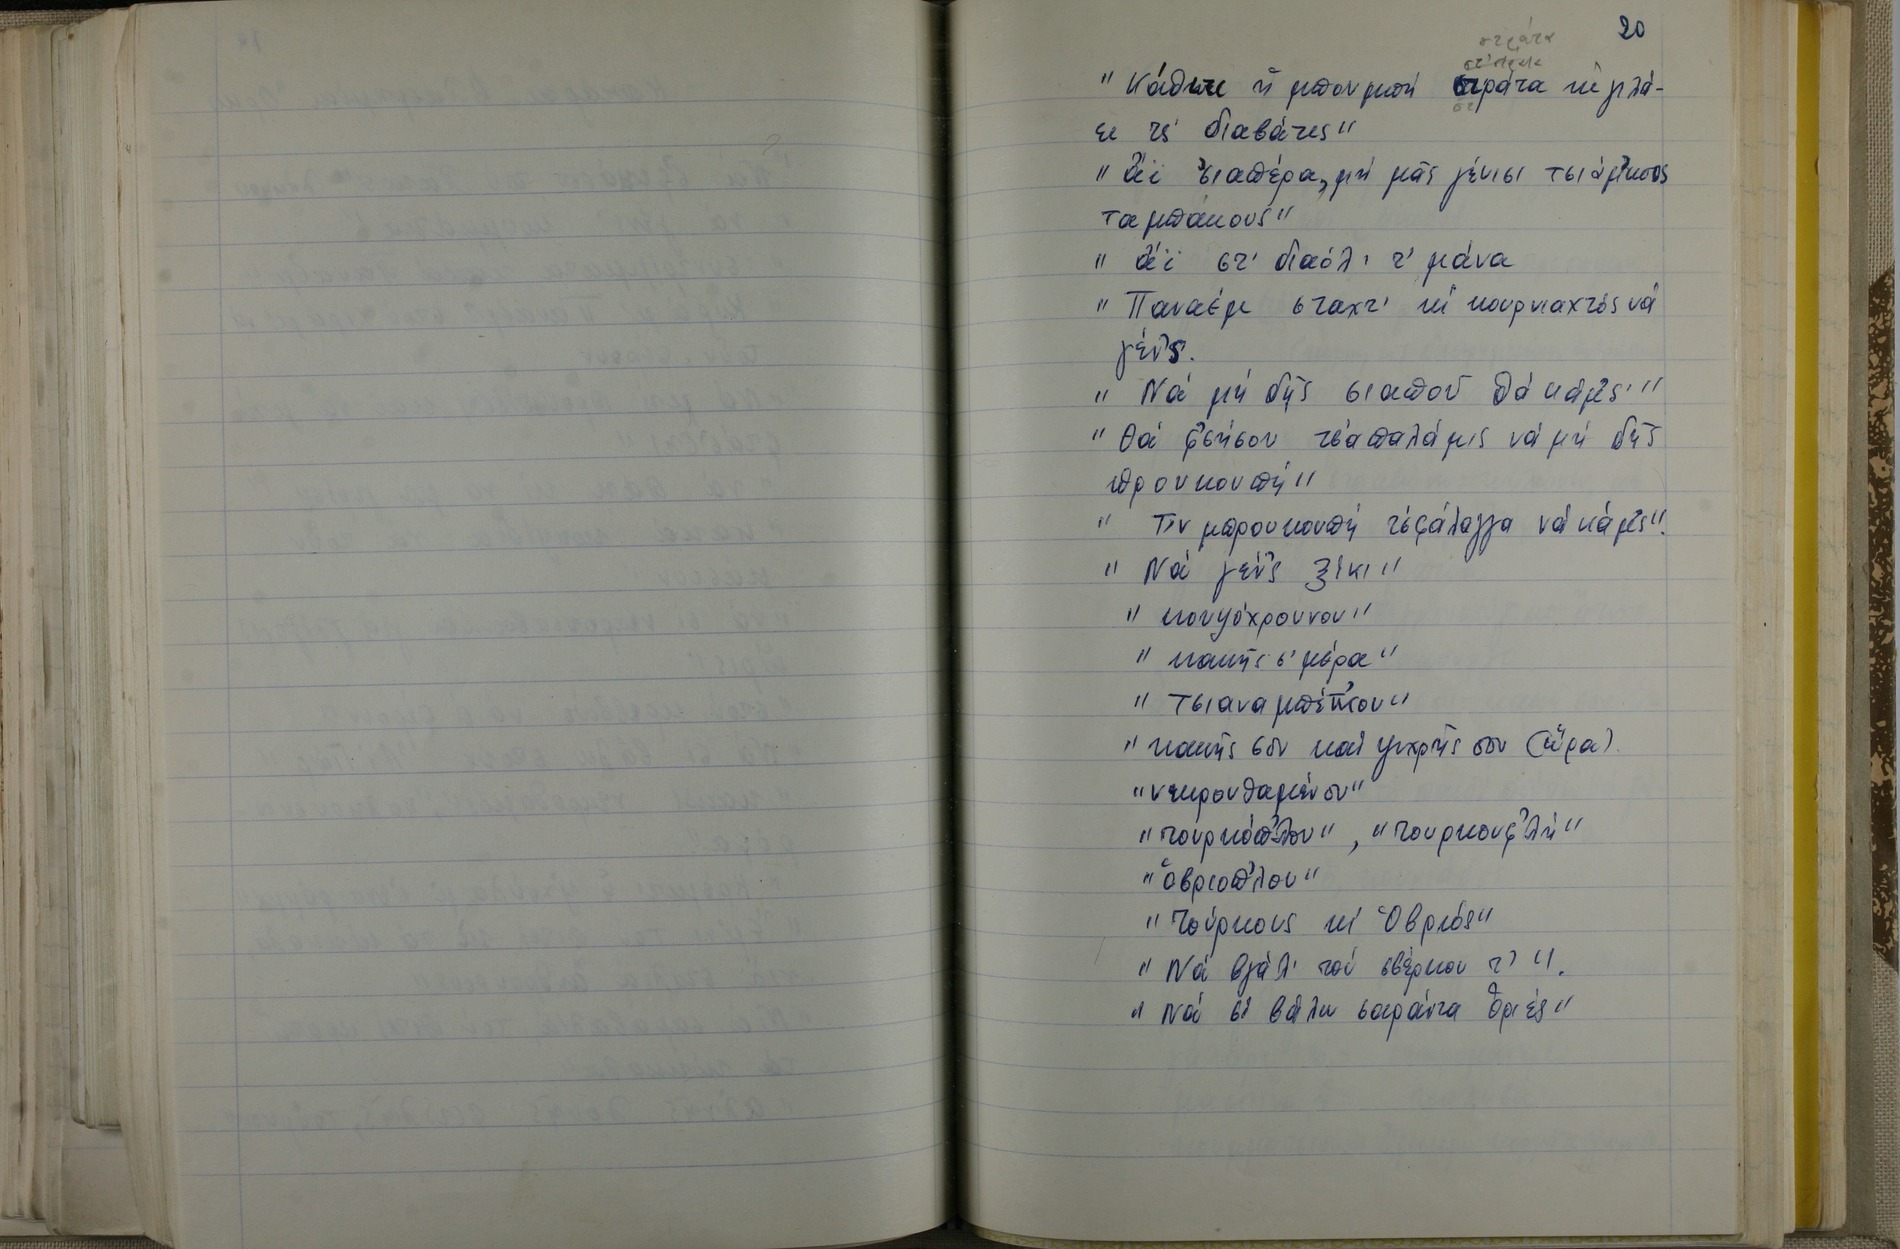 20
στράτα
"Κάθιτι ἡ μπουμπή στράτα κὶ γιλά-
ει τς' διαβάτις"
"ἄϊ σιαπέρα, μή μᾶς γένισι τσιάμκους
ταμπάκους"
"ἄϊ στ' διαόλ' τ' μάνα
"Παναέμ στάχτ' κὶ κουρνιαχτός νά
γέν'ς.
"Νά μή δῆς σιαποῦ θά κάμ'ς"
"Θά φ'σήσου τσ'απαλάμις νά μή δῆς
προυκουπή"
"Τν μπρουκουπή τσφάλαγγα νά κάμ'ς".
"Νά γέν'ς ξίκι"
"κουψόχρουνου"
"κακῆς σ' μέρα"
"τσιαναμπέτ'κου"
"κακῆς σου καί ψυχρῆς σου (ὥρα).
"νεκρουθαμένου"
"τουρκόπ'λου", "τουρκουφ'λή"
"ὀβριοπ'λου"
"Τούρκους κί Ὀβριός"
"Νά βγάλ' τού σβέρκου τ'".
"Νά σί βάλω σαράντα ὀριές"